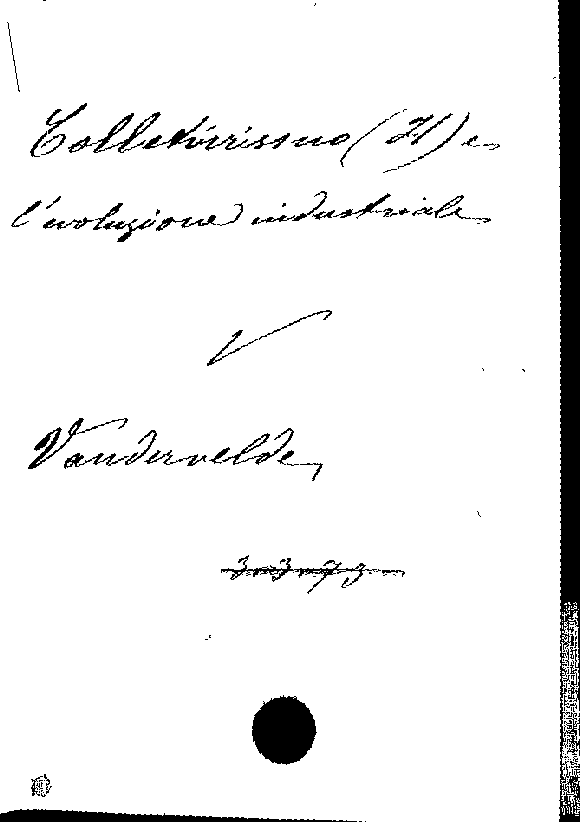 Collettivismo (Il) e
l'evoluzione industriale
V
Vandervelde
3373